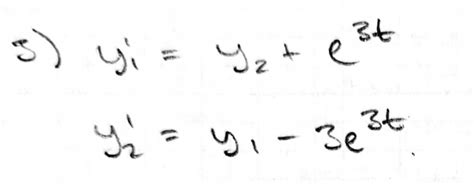 5) y₁' = y₂ + e³ᵗ
y₂' = y₁ - 3e³ᵗ.